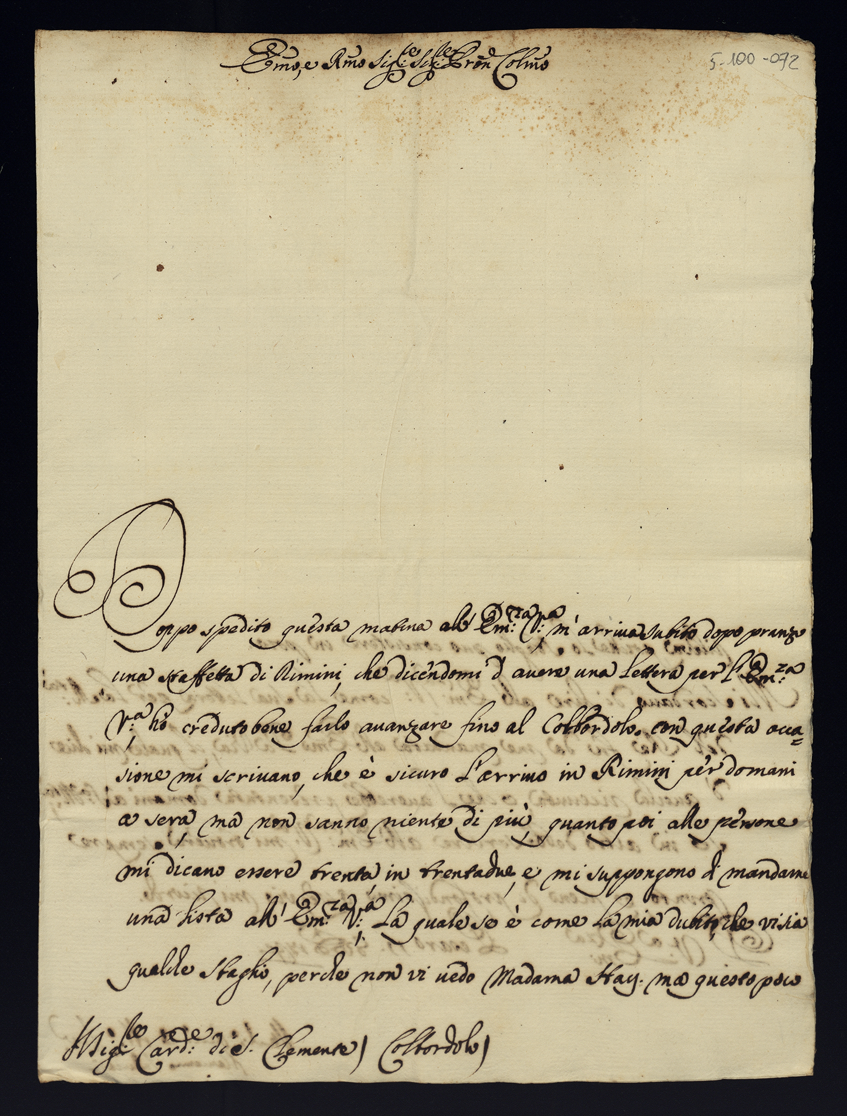 Emo, e Rmo Sig:re Sig:re Pron Colmo
5-100-092
Doppo spedito questa matina all' Em:za V:a m'arriva subito dopo pranzo
una staffetta di Rimini, che dicendomi d'avere una Lettera per l'Em:za
V:a hò creduto bene farlo avanzare fino al Colbordolo. con questa occa=
sione mi scrivano, che è sicuro l'arrivo in Rimini per domani
a sera, ma non sanno niente di più, quanto poi alle persone
mi dicano essere trenta, in trentadue, e mi suppongono di mandarne
una lista all' Em:za V:a La quale se è come La mia dubito, che vi sia
qualche sbaglio, perche non vi vedo Madama Hay. ma questo poco
Sig:re Card:e di S. Clemente) Colbordolo)